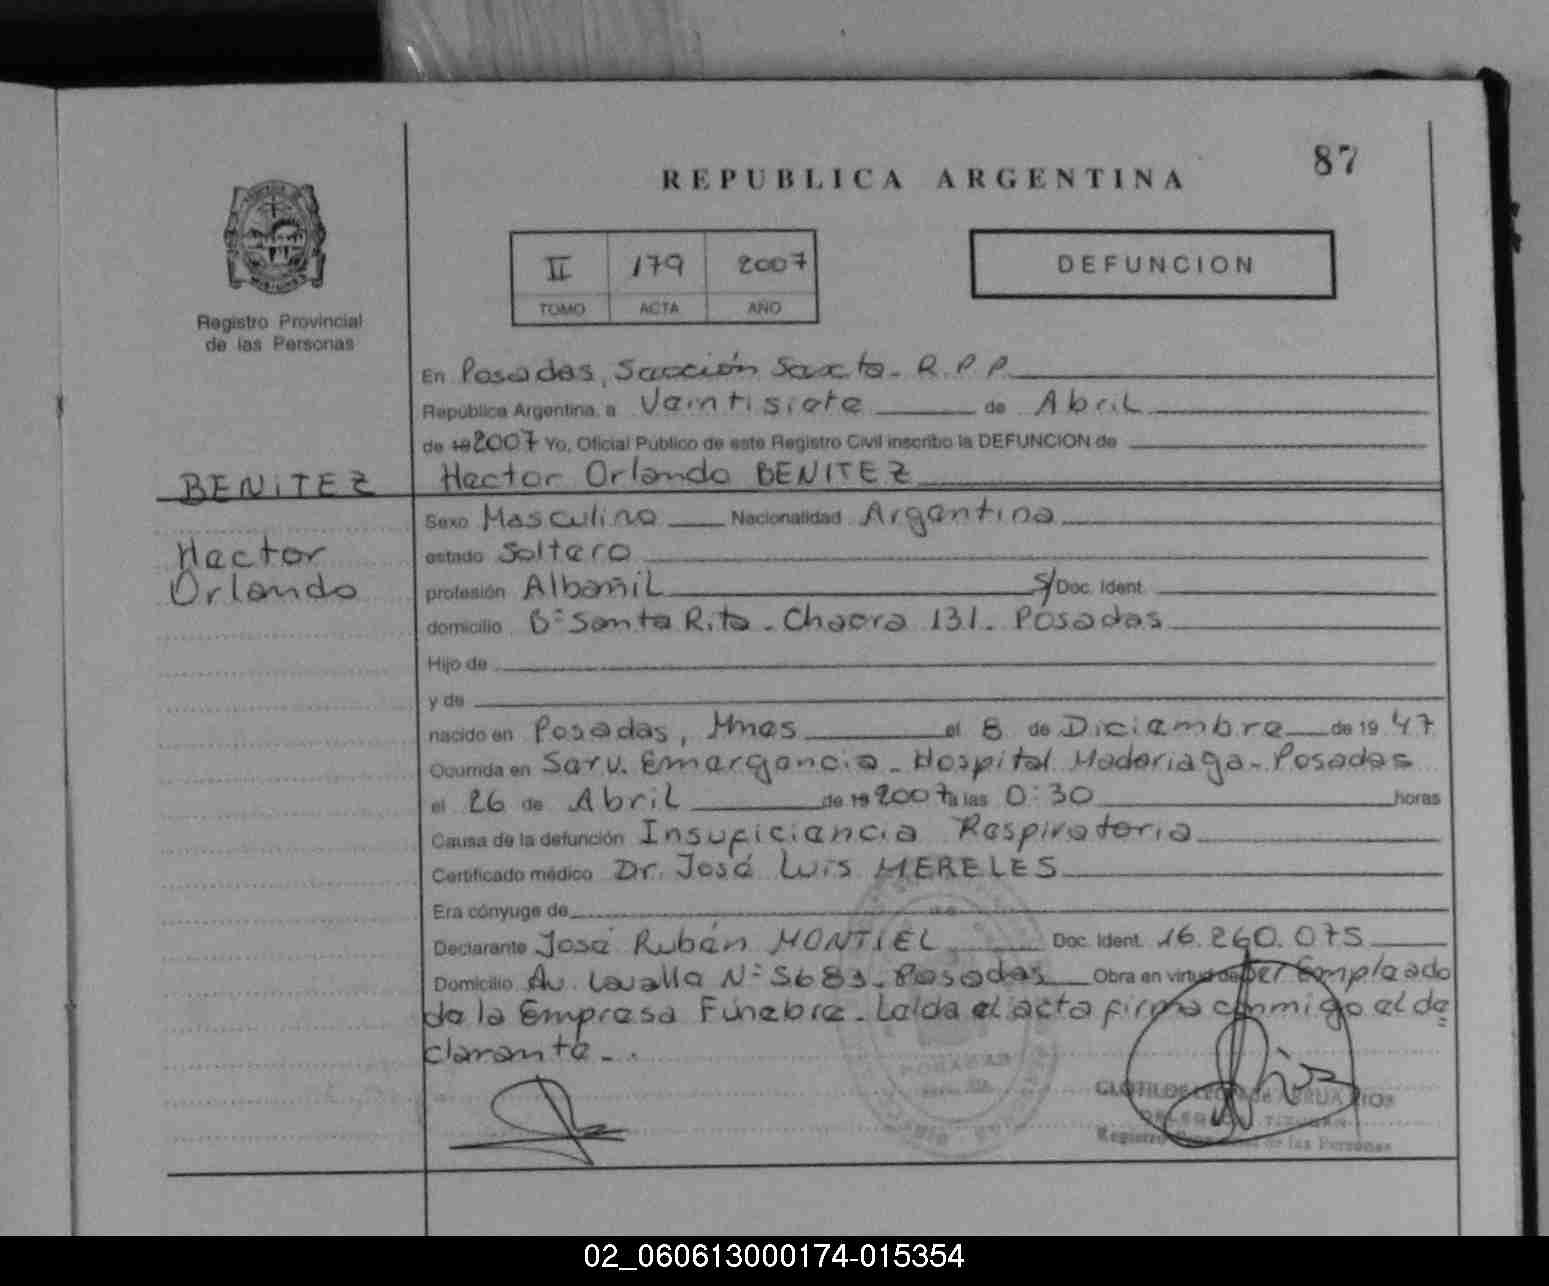 87
REPUBLICA ARGENTINA
II 179 2007
TOMO ACTA AÑO
DEFUNCION
Registro Provincial
de las Personas
En Posadas, Sección Sexta- R.P.P.
República Argentina, a Veintisiete de Abril
de 19 2007 Yo, Oficial Público de este Registro Civil inscribo la DEFUNCION de
BENITEZ Hector Orlando BENITEZ
Sexo Masculino Nacionalidad Argentina
Hector
estado Soltero
Orlando
profesión Albañil S/ Doc. Ident.
domicilio Bº Santa Rita - Chacra 131- Posadas
Hijo de
y de
nacido en Posadas, Mnes el 8 de Diciembre de 19 47
Ocurrida en Serv. Emergencia - Hospital Madariaga - Posadas
el 26 de Abril de 19 2007 a las 0:30 horas
Causa de la defunción Insuficiencia Respiratoria
Certificado médico Dr. José Luis MERELES
Era cónyuge de
Declarante José Rubén MONTIEL Doc. Ident. 16.260.075
Domicilio Av. Lavalle Nº 5683- Posadas Obra en virtud de Ser Empleado
de la Empresa Fúnebre - Leída el acta firma conmigo el de
clarante - .
POSADAS
TITULAR
Registro de las Personas
02_060613000174-015354